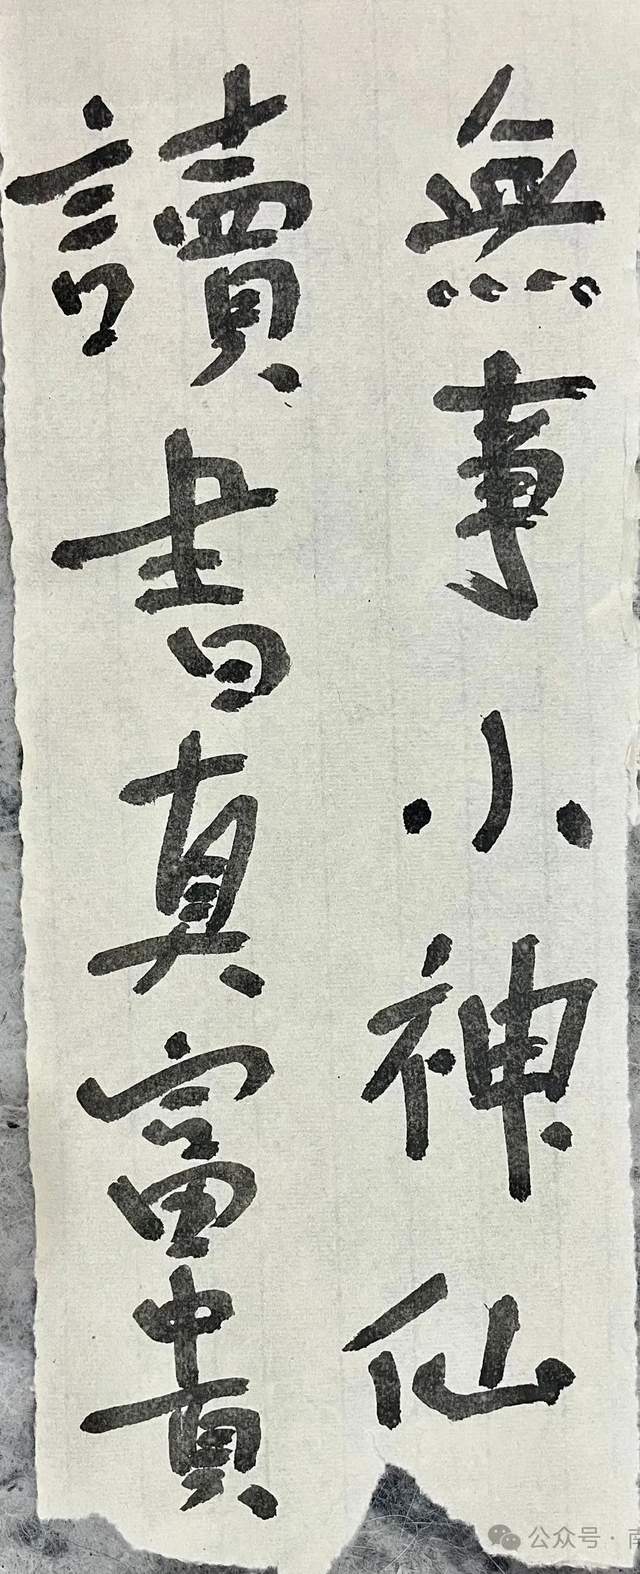 無事小神仙
讀書真富貴
公众号·南